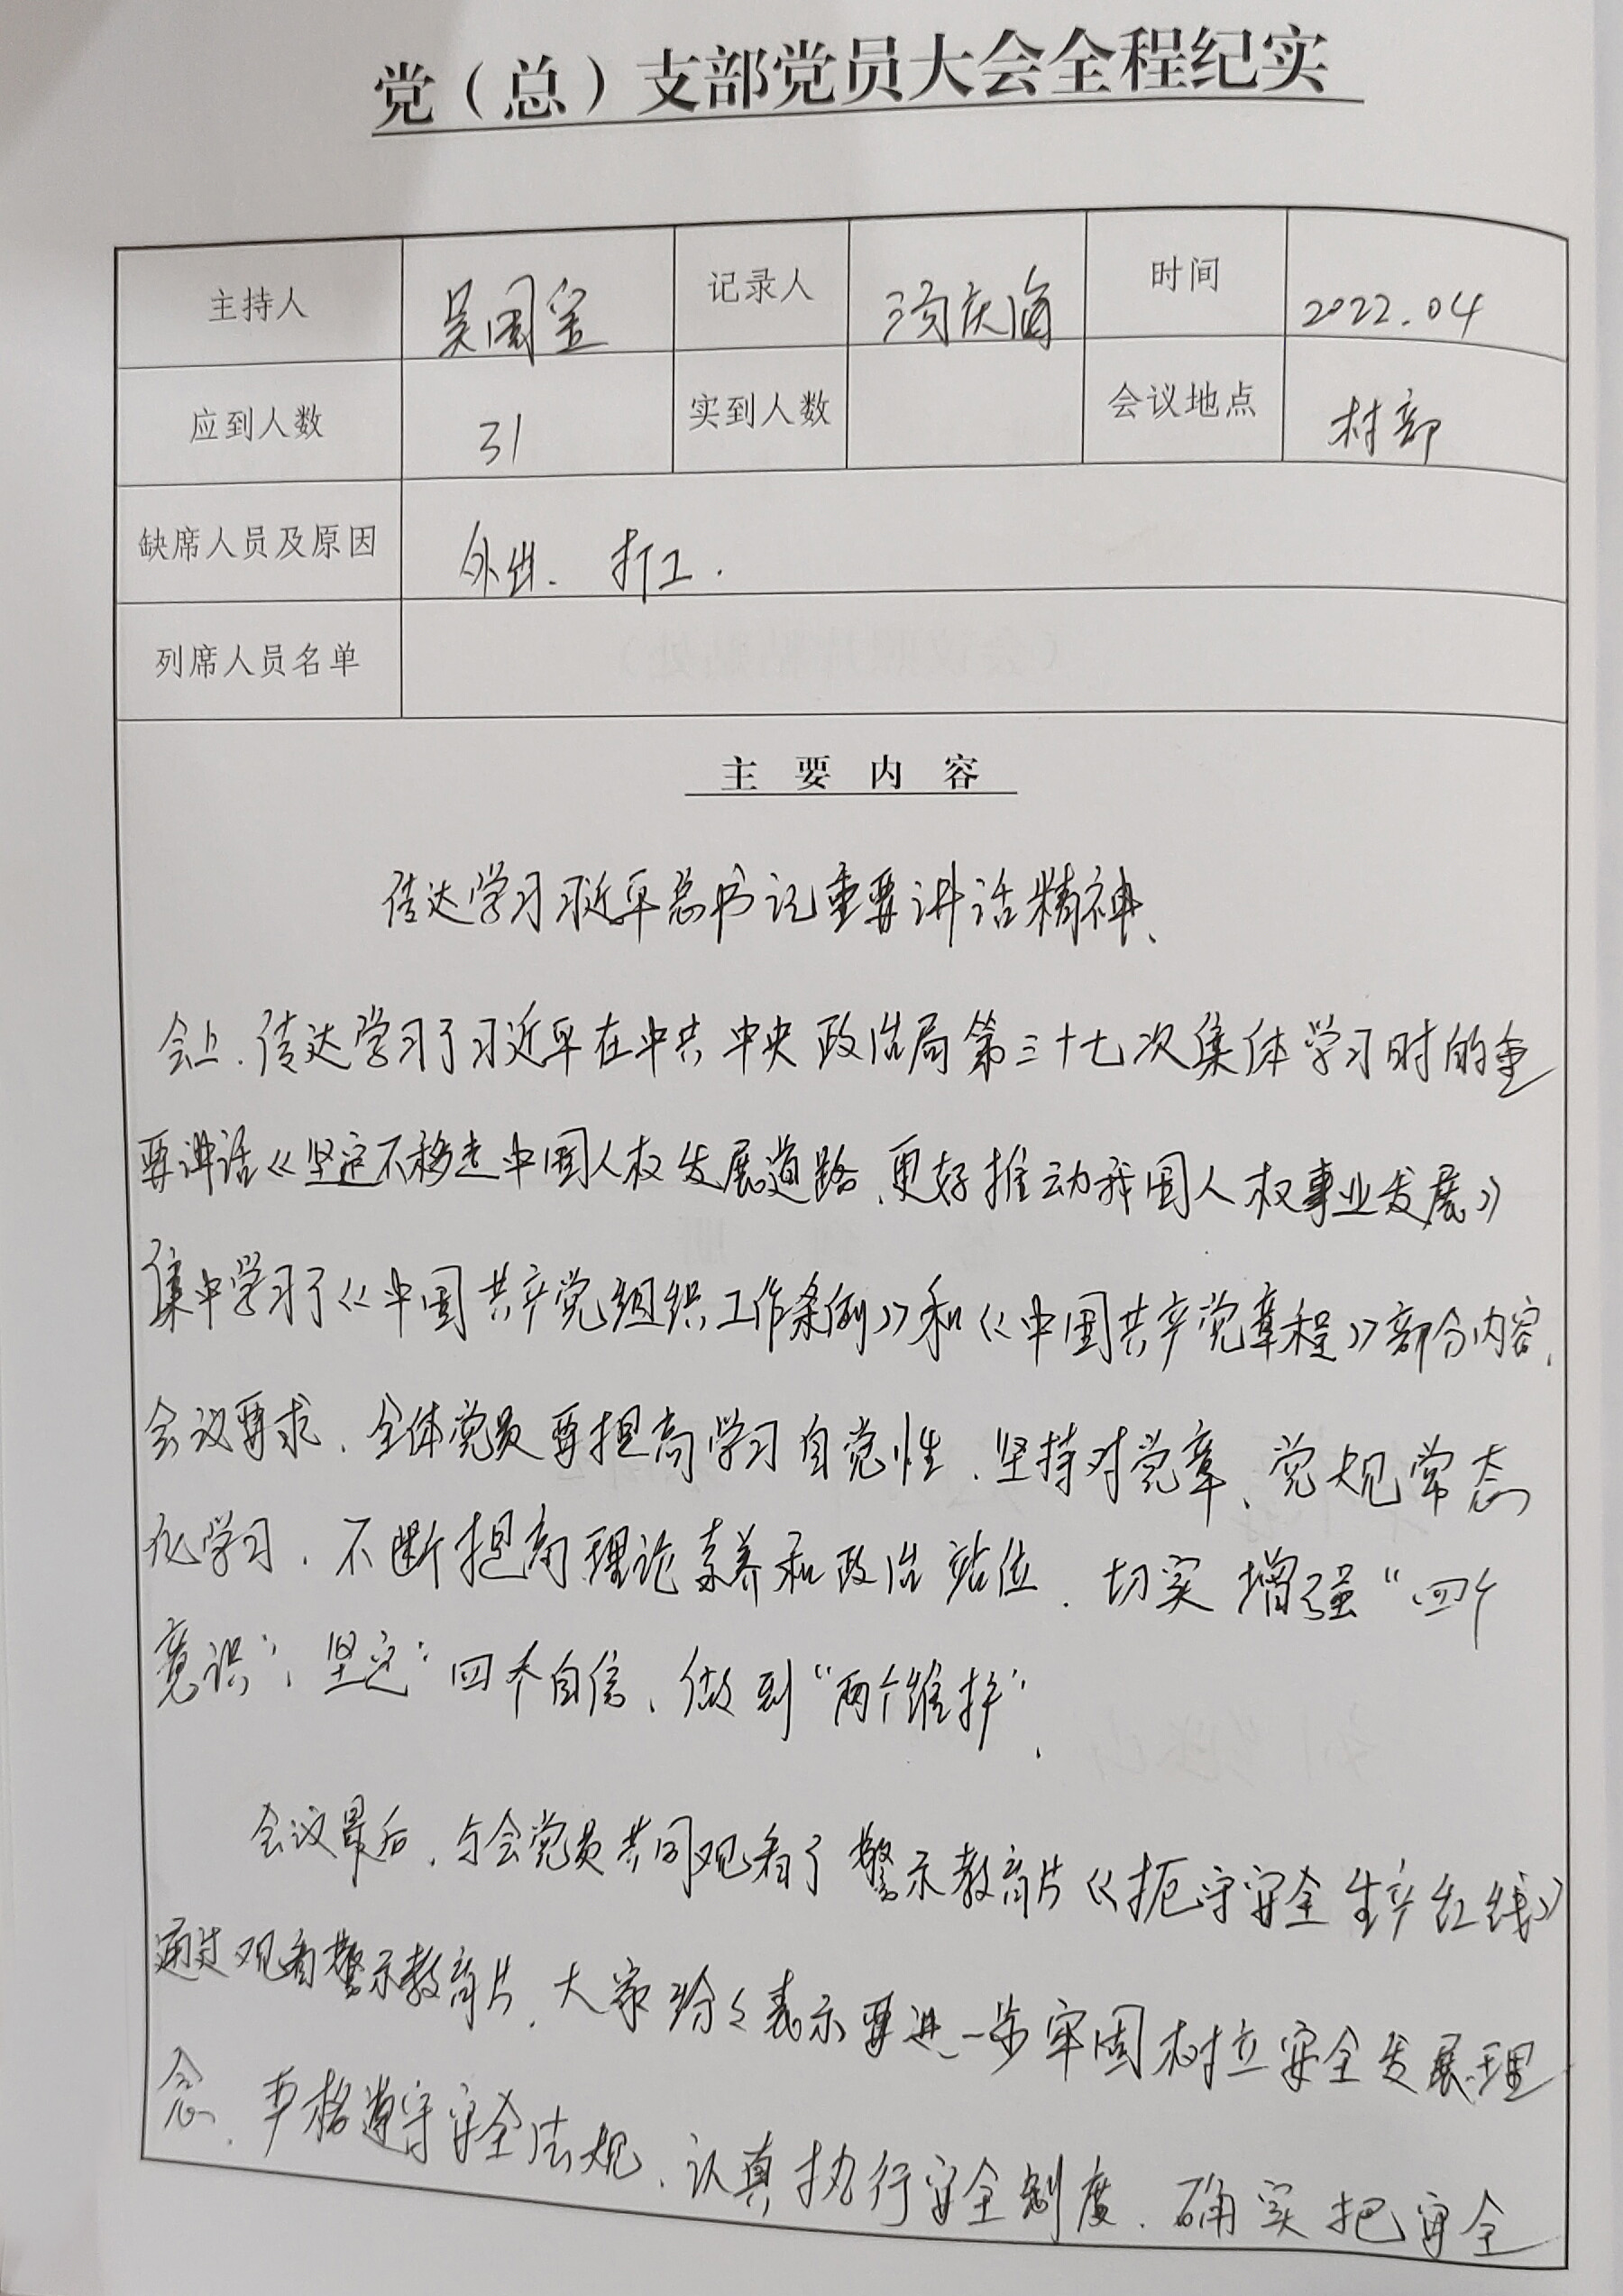 党（总）支部党员大会全程纪实
主持人 吴国宝 记录人 汤庆海 时间 2022.04
应到人数 31 实到人数 会议地点 村部
缺席人员及原因 外出、打工.
列席人员名单
主要内容
传达学习习近平总书记重要讲话精神、
会上、传达学习了习近平在中共中央政治局第三十七次集体学习时的重
要讲话《坚定不移走中国人权发展道路、更好推动我国人权事业发展》
集中学习了《中国共产党组织工作条例》和《中国共产党章程》部分内容、
会议要求、全体党员要提高学习自觉性、坚持对党章、党规常态
化学习、不断提高理论素养和政治站位、切实增强“四个
意识”、坚定“四个自信、做到“两个维护”、
会议最后、与会党员共同观看了警示教育片《扼守安全生产红线》
通过观看警示教育片、大家纷々表示要进一步牢固树立安全发展理
念、严格遵守安全法规、认真执行安全制度、确实把安全